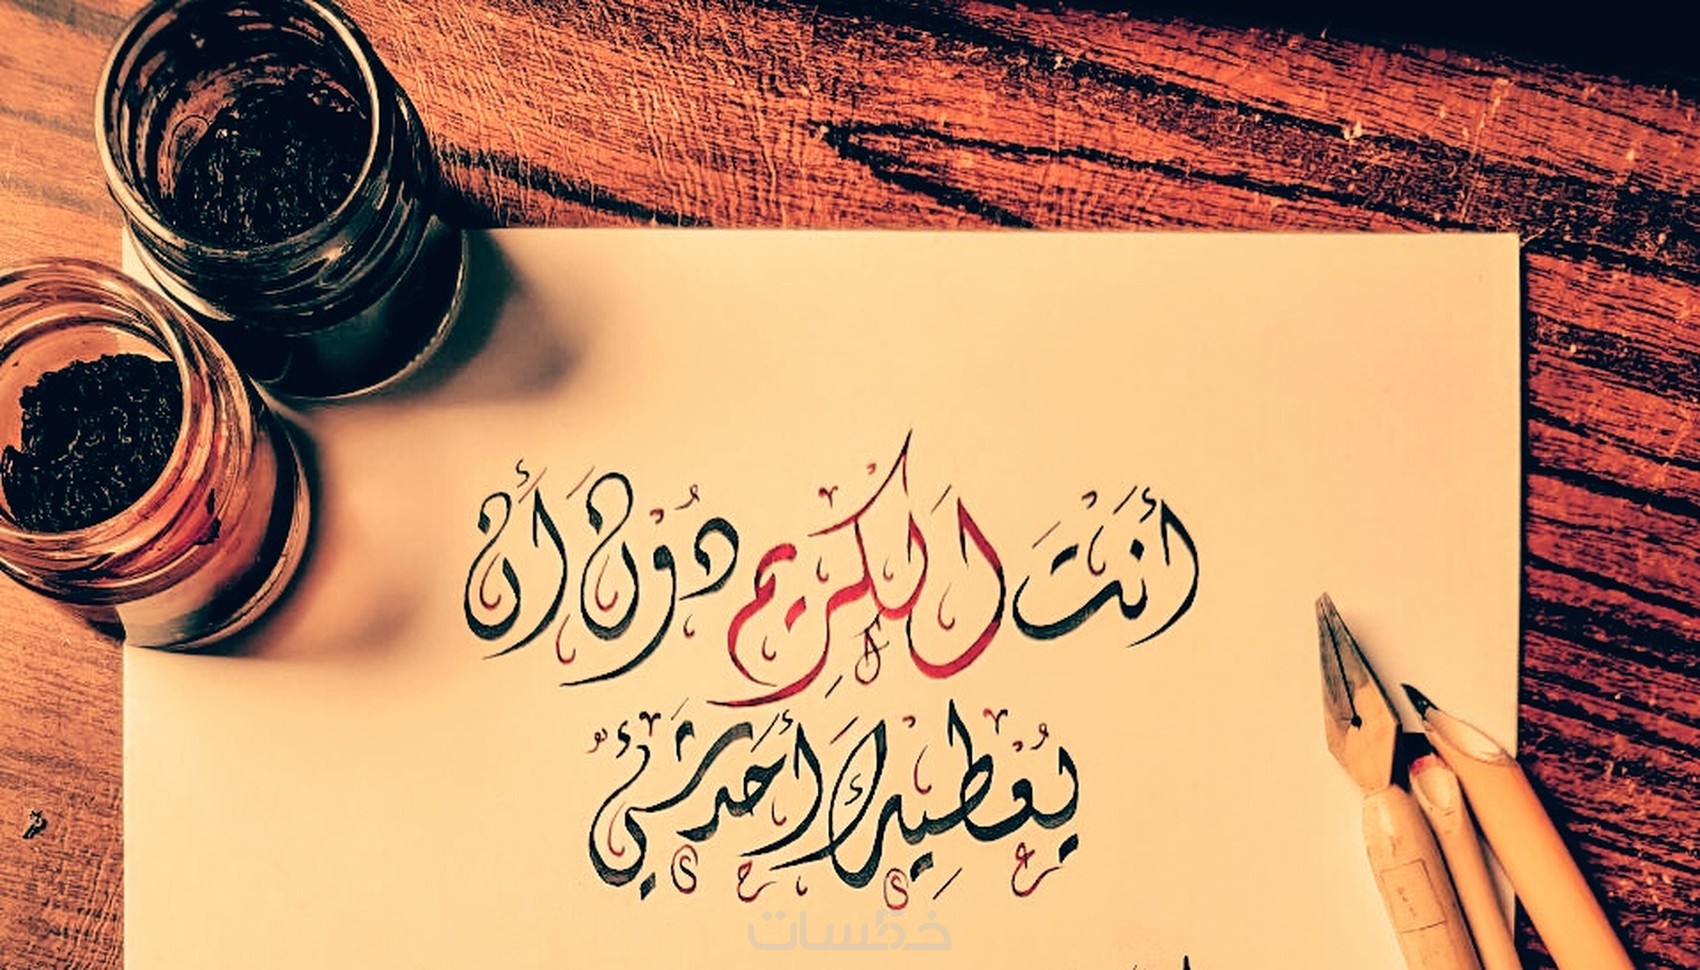 أَنْتَ الَكْريم دُوْنَ أَن
يُعْطِيكَ أَحَد شَئٌ
خمسات